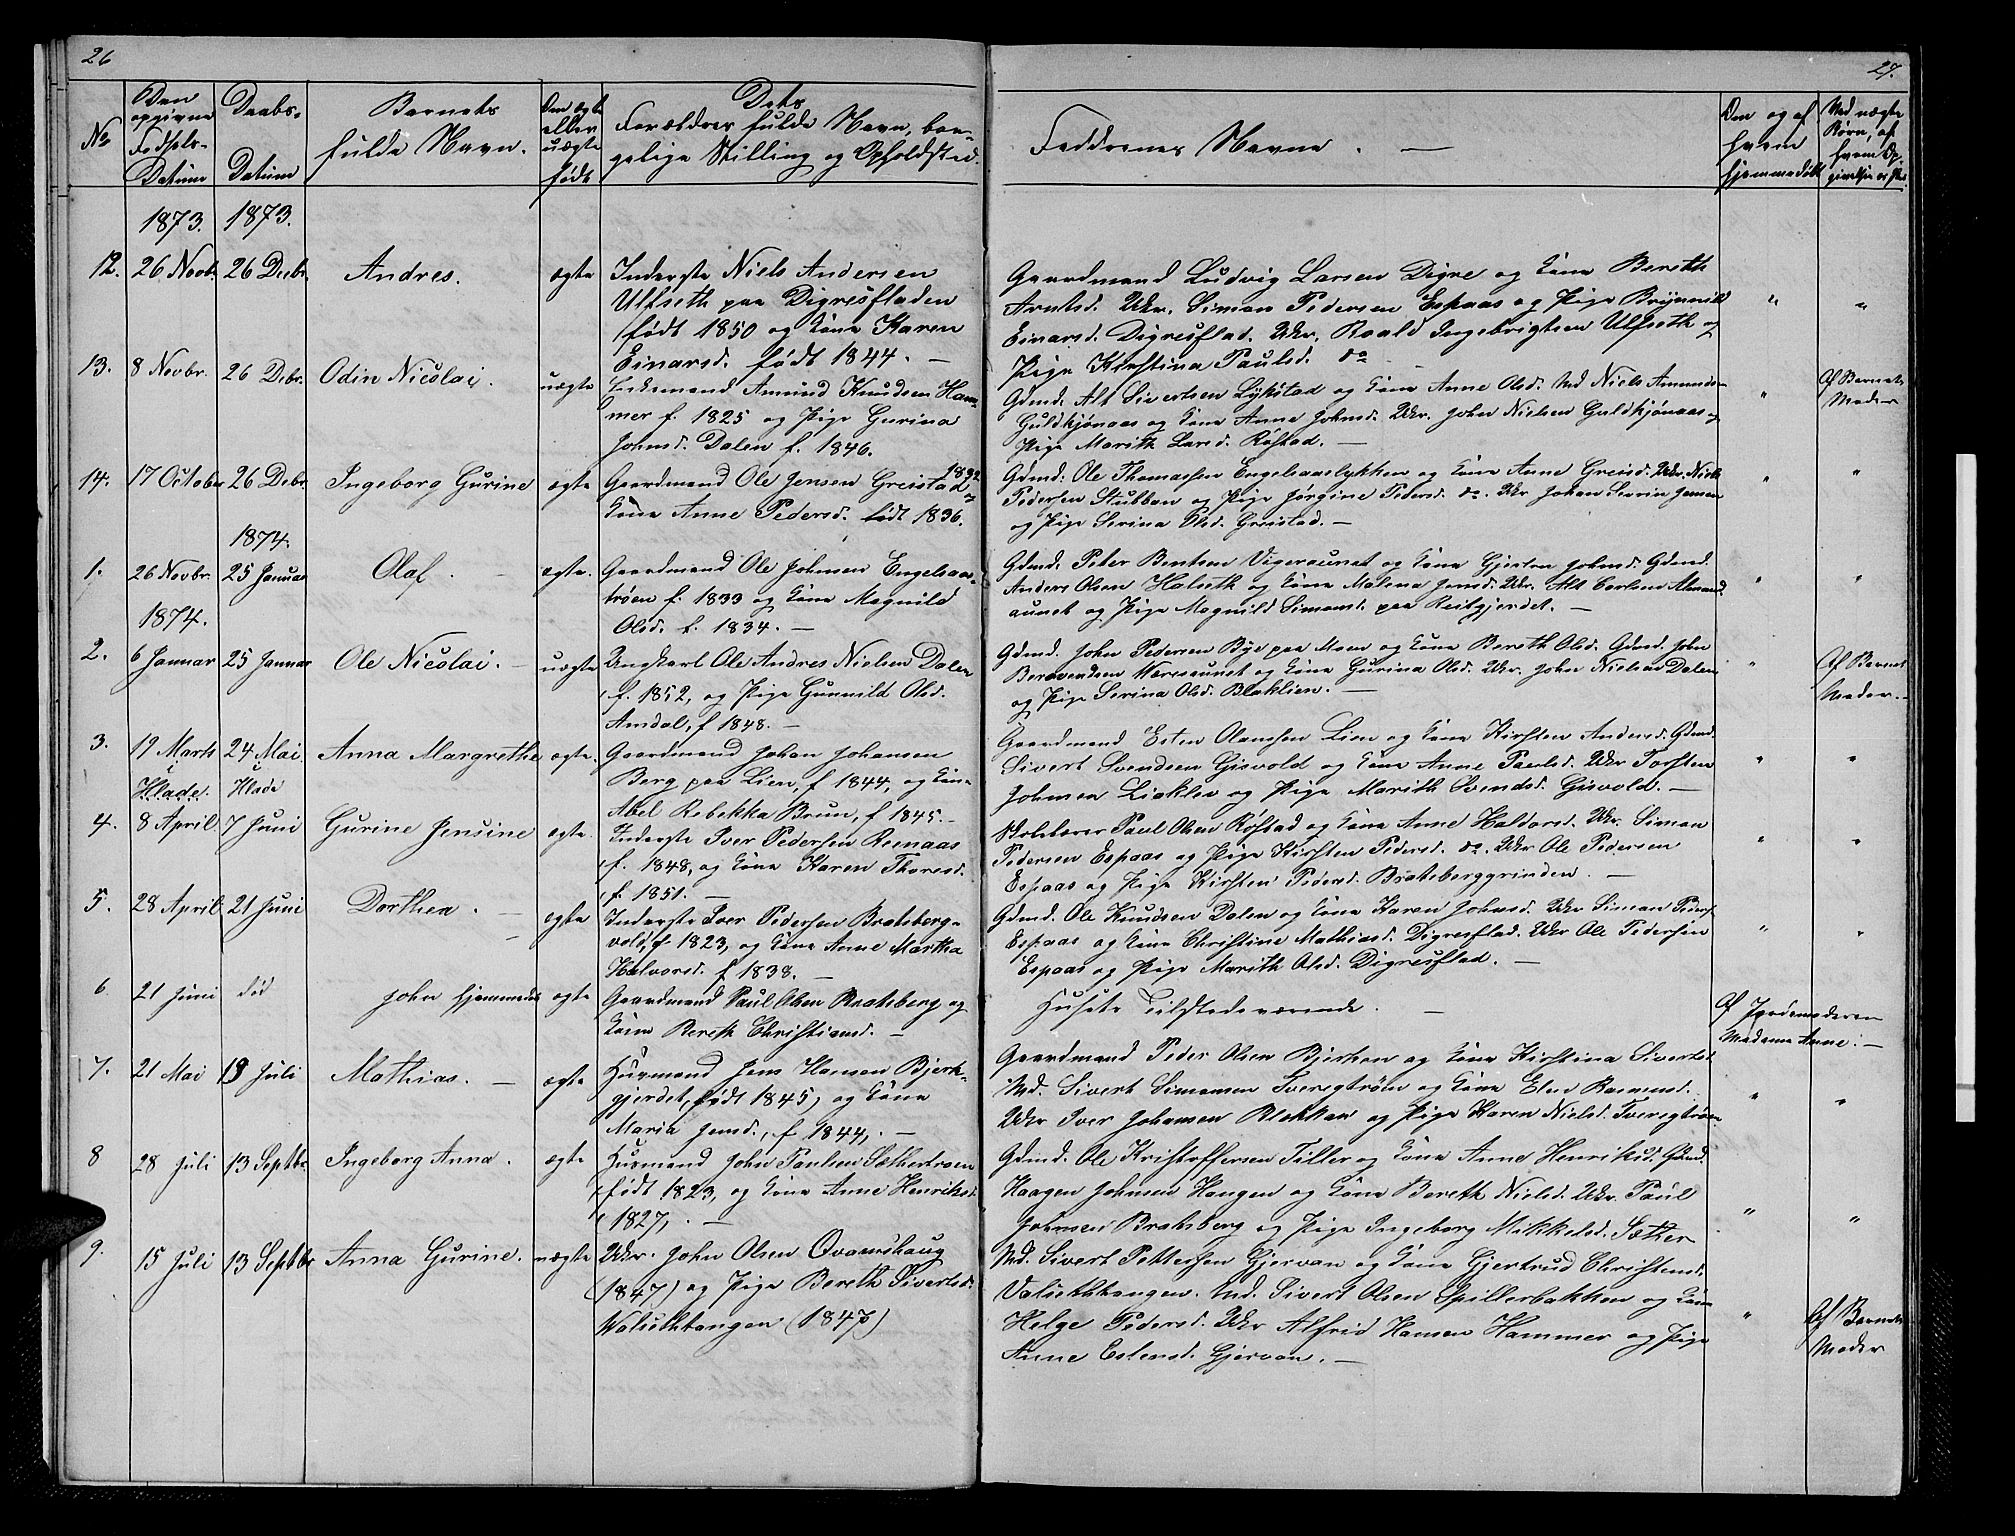 26
No
Den opgivne Fødsels-Datum
Daabs-Datum
Barnets fulde Navn.
Om ægte eller uægte født
Dets Forældres fulde Navn, borgelige Stilling og Opholdsted.
1873. 1873.
12. 26 Novbr. 26 Decbr. Andres. ægte Inderste Niels Andersen
Ulfseth paa Digresfladen
født 1850 og Kone Karen
Einarsd. født 1844. —
13. 8 Novbr. 26 Debr. Odin Nicolai. uægte Enkemand Amund Knudsen Ham-
mer f. 1825 og Pige Gurina
Johnsd. Dalen f. 1846.
14. 17 October 26 Debr. Ingeborg Gurine ægte Gaardmand Ole Jensen Greistad 1832 og
Kone Anne Pedersd. født 1836.
1874.
1. 26 Novbr. 25 Januar Olaf. — ægte. Gaardmand Ole Johnsen Engelsaas-
trøen f. 1833 og Kone Magnild
Olsd. f. 1834. —
1874.
2. 6 Januar 25 Januar Ole Nicolai. — uægte Ungkarl Ole Andres Nielsen Dalen
f. 1852, og Pige Gunnild Olsd.
Amdal, f 1848. —
3. 19 Marts 24 Mai Anna Margrethe ægte. Gaardmand Johan Johansen
Hlade. Hlade Berg paa Lien, f 1844, og Kone
Abel Rebekka Brun, f 1845. —
4. 8 April. 7 Juni Gurine Jensine ægte. Inderste Iver Pedersen Reenaas
f. 1848, og Kone Karen Thoresd.
f. 1851. —
5. 28 April 21 Juni Dorthea. — ægte Inderste Iver Pedersen Bratsberg-
vold, f. 1823, og Kone Anne Martha
Halvorsd. f 1838. —
6. 21 Juni død John hjemmedøbt ægte Gaardmand Paul Olsen Bratsberg og
Kone Bereth Christiansd. —
7. 21 Mai 13 Juli Mathias. — ægte Husmand Jens Hansen Bjerk-
gjerdet, født 1845, og Kone
Maria Jensd., f 1844, —
8 28 Juli 13 Septbr. Ingeborg Anna. ægte Husmand John Paulsen Sætertrøen
født 1823, og Kone Anne Henriksd.
1827, —
9. 15 Juli 13 Septbr Anna Gurine. uægte Ukr. John Olsen Qvamshaug
(1847) og Pige Bereth Sivertsd.
Walsethhangen (1847)
27.
Faddrenes Navne. —
Om og af hvem hjemmedøbt
Ved uægte Børn, af hvem Opgivelse er skeet
Gaardmand Ludvig Larsen Digre og Kone Bereth
Arntsd. Ukr. Simon Pedersen Espaas og Pige Brynnild
Einarsd. Digresflad. Ukr. Roald Ingebrigtsen Ulfseth og
Pige Kirstina Paulsd. do " "
Gdmd. Alt Sivertsen Lykstad og Kone Anne Olsd. Md Niels Amundsen
Guldkjønaas og Kone Anne Johnsd. Ukr. John Nielsen Guldkjønaas og
Pige Marith Larsd. Røstad. — " Af Barnets Moder
Gdmd. Ole Thomassen Engelsaaslykken og Kone Anne Greisd. Ukr. Niels
Pedersen Stubban og Pige Jørgine Pedersd. do. Ukr Johan Severin Jensen
og Pige Serina Olsd. Greistad. — " "
Gdmd. Peter Bentsen Vigeraunet og Kone Gjerton Johnsd. Gdmd.
Anders Olsen Halseth og Kone Malena Jensd. Ukr. Alt Carlsen Amund
aunet og Pige Magnild Simonsd. paa Reitgjerdet. — " "
Gdmd. John Pedersen Bye paa Moen og Kone Bereth Olsd. Gdmd. John
Berovendsen Næresaunet og Kone Gurina Olsd. Ukr. John Nielsen Dalen
og Pige Serina Olsd. Bloklien. — " Af Barnets Moder. —
Gaardmand Esten Olaussen Lien og Kone Kirsten Andersd. Gdmd.
Sivert Svendsen Gisvold og Kone Anne Paulsd. Ukr Torsten
Johnsen Liaklev og Pige Marith Svendsd. Gisvold. — " "
Skolelærer Paul Olsen Røstad og Kone Anne Haldorsd. Ukr. Simon
Pedersen Espaas og Pige Kirsten Pedersd. do. Ukr Ole Pedersen
Espaas og Pige Kirsten Pedersd. Bratsberggrinden. — " "
Gdmd. Ole Knudsen Dalen og Kone Karen Johnsd. Ukr Simon Peders
Espaas og Kone Christine Mathiasd. Digresflad. Ukr Ole Pedersen
Espaas og Pige Marith Olsd. Digresflad. — " "
Husets Tilstedeværende. — Af Jordemoderen Madame Anne. —
Gaardmand Peder Olsen Bjerken og Kone Kirstina Sivertsd.
Md. Sivert Simonsen Tveregtrøen og Kone Elen Rasmusd.
Ukr Iver Johansen Blekkan og Pige Karen Nielsd. Tveregtrøen " "
Gdmd. Ole Kristoffersen Tiller og Kone Anne Henriksd. Gdmd.
Haagen Johnsen Hangen og Kone Bereth Nielsd. Ukr. Paul
Johnsen Bratsberg og Pige Ingeborg Mikkelsd. Sætter " "
Md. Sivert Pettersen Gjervan og Kone Gjertrud Christensd.
Valsethhangen. Md. Sivert Olsen Spillerbakken og Kone
Helge Pedersd. Ukr Alfrid Hansen Hammer og Pige
Anne Estensd. Gjervan. — " Af Barnets Moder